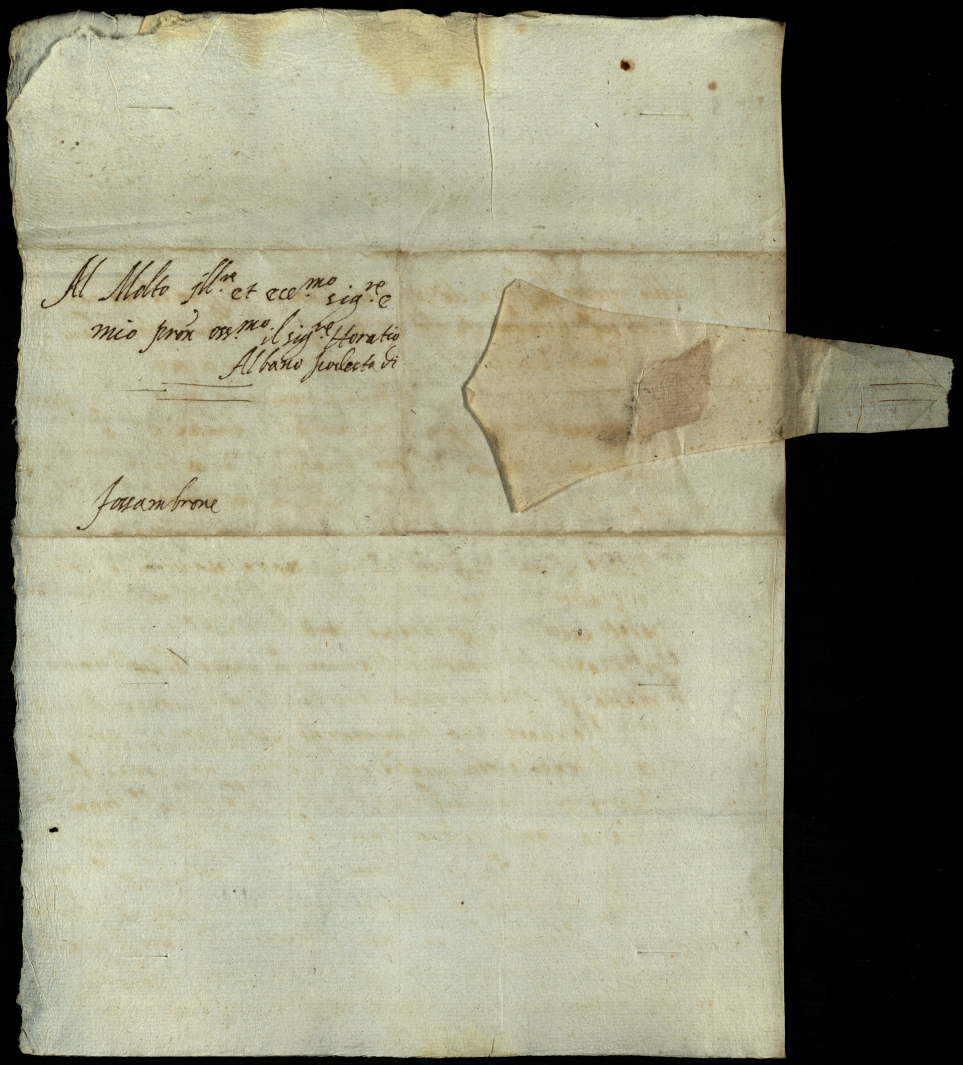 Al Molto Ill.re et ecc.mo sig.re e
mio prõn oss.mo il sig.re Horatio
Albano podesta di
fossambrone